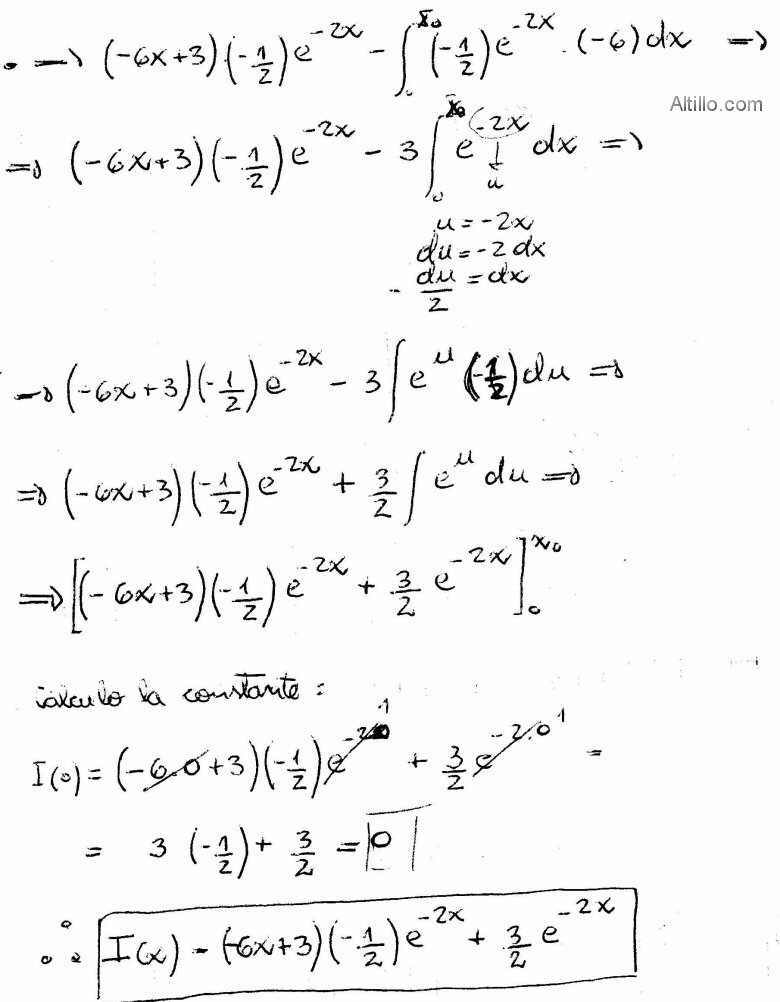 . → (-6x+3)(-1/2)e^{-2x} - ∫_0^{x_0} (-1/2)e^{-2x} . (-6) dx ⇒
Altillo.com
⇒ (-6x+3)(-1/2)e^{-2x} - 3 ∫_0^{x_0} e^{-2x} dx ⇒
u
u = -2x
du = -2 dx
- du/2 = dx
→ (-6x+3)(-1/2)e^{-2x} - 3 ∫ e^u (-1/2) du ⇒
⇒ (-6x+3)(-1/2)e^{-2x} + 3/2 ∫ e^u du ⇒
⇒ [(-6x+3)(-1/2)e^{-2x} + 3/2 e^{-2x}]_0^{x_0}
cálculo la constante :
I(0) = (-6.0+3)(-1/2)e^{-2.0} 1 + 3/2 e^{-2.0} 1 =
= 3 (-1/2) + 3/2 = 0
∴ I(x) = (-6x+3)(-1/2)e^{-2x} + 3/2 e^{-2x}